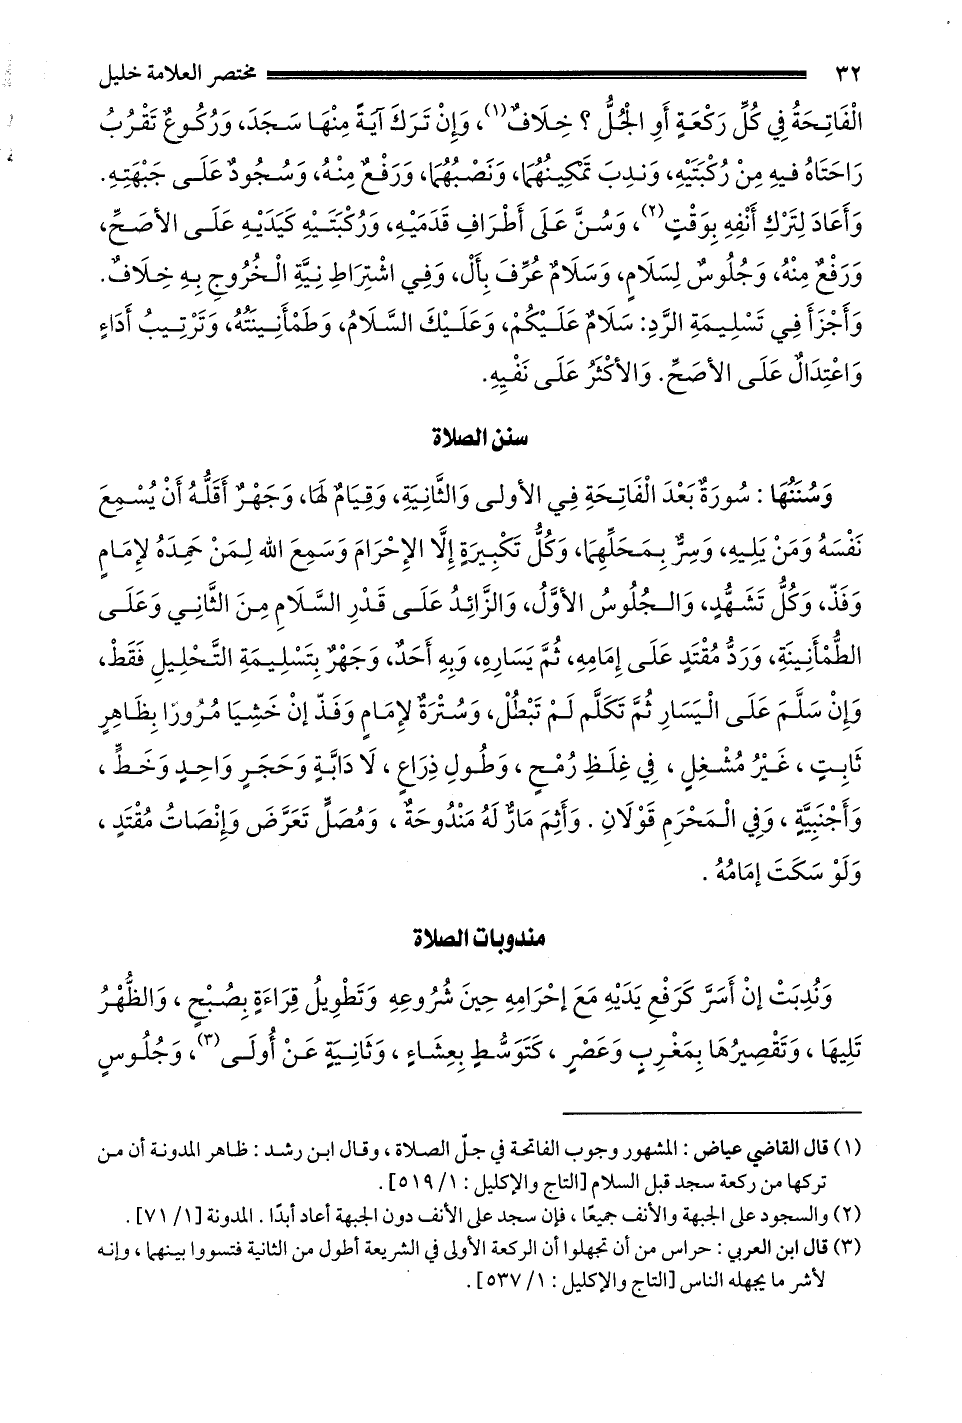 ٣٢ مختصر العلامة خليل
الْفَاتِحَةُ فِي كُلِّ رَكْعَةٍ أَوِ الْجُلُّ ؟ خِلَافٌ(١)، وَإِنْ تَرَكَ آيَةً مِنْهَا سَجَدَ، وَرُكُوعٌ تَقْرُبُ
رَاحَتَاهُ فِيهِ مِنْ رُكْبَتَيْهِ، وَنُدِبَ تَمْكِينُهُمَا، وَنَصْبُهُمَا، وَرَفْعٌ مِنْهُ، وَسُجُودٌ عَلَى جَبْهَتِهِ.
وَأَعَادَ لِتَرْكِ أَنْفِهِ بِوَقْتٍ(٢)، وَسُنَّ عَلَى أَطْرَافِ قَدَمَيْهِ، وَرُكْبَتَيْهِ كَيَدَيْهِ عَلَى الأَصَحِّ،
وَرَفْعٌ مِنْهُ، وَجُلُوسٌ لِسَلَامٍ، وَسَلَامٌ عُرِّفَ بِأَلْ، وَفِي اشْتِرَاطِ نِيَّةِ الْخُرُوجِ بِهِ خِلَافٌ.
وَأَجْزَأَ فِي تَسْلِيمَةِ الرَّدِ: سَلَامٌ عَلَيْكُمْ، وَعَلَيْكَ السَّلَامُ، وَطُمَأْنِينَتُهُ، وَتَرْتِيبُ أَدَاءٍ
وَاعْتِدَالٌ عَلَى الأَصَحِّ. وَالأَكْثَرُ عَلَى نَفْيِهِ.
سنن الصلاة
وَسُنَنُهَا : سُورَةٌ بَعْدَ الْفَاتِحَةِ فِي الأولى وَالثَّانِيَةِ، وَقِيَامٌ لَهَا، وَجَهْرٌ أَقَلُّهُ أَنْ يُسْمِعَ
نَفْسَهُ وَمَنْ يَلِيهِ، وَسِرٌّ بِمَحَلِّهِمَا، وَكُلُّ تَكْبِيرَةٍ إِلَّا الإِحْرَامَ وَسَمِعَ الله لِمَنْ حَمِدَهُ لإِمَامٍ
وَفَذّ، وَكُلُّ تَشَهُّدٍ، وَالْجُلُوسُ الأَوَّلُ، وَالزَّائِدُ عَلَى قَدْرِ السَّلَامِ مِنَ الثَّانِي وَعَلَى
الطُّمَأْنِينَةِ، وَرَدُّ مُقْتَدٍ عَلَى إِمَامِهِ، ثُمَّ يَسَارِهِ، وَبِهِ أَحَدٌ، وَجَهْرٌ بِتَسْلِيمَةِ التَّحْلِيلِ فَقَطْ،
وَإِنْ سَلَّمَ عَلَى الْيَسَارِ ثُمَّ تَكَلَّمَ لَمْ تَبْطُلْ، وَسُتْرَةٌ لإِمَامٍ وَفَذّ إِنْ خَشِيَا مُرُورًا بِظَاهِرٍ
ثَابِتٍ ، غَيْرُ مُشْغِلٍ ، فِي غِلَظِ رُمْحٍ ، وَطُولِ ذِرَاعٍ ، لَا دَابَّةٍ وَحَجَرٍ وَاحِدٍ وَخَطٍّ ،
وَأَجْنَبِيَّةٍ ، وَفِي الْمَحْرَمِ قَوْلَانِ . وَأَثِمَ مَارٌّ لَهُ مَنْدُوحَةٌ ، وَمُصَلٍّ تَعَرَّضَ وَإِنْصَاتُ مُقْتَدٍ ،
وَلَوْ سَكَتَ إِمَامُهُ .
مندوبات الصلاة
وَنُدِبَتْ إِنْ أَسَرَّ كَرَفْعِ يَدَيْهِ مَعَ إِحْرَامِهِ حِينَ شُرُوعِهِ وَتَطْوِيلُ قِرَاءَةٍ بِصُبْحٍ ، وَالظُّهْرُ
تَلِيهَا ، وَتَقْصِيرُهَا بِمَغْرِبٍ وَعَصْرٍ ، كَتَوَسُّطٍ بِعِشَاءٍ ، وَثَانِيَةٍ عَنْ أُولَى(٣)، وَجُلُوسٍ
(١) قال القاضي عياض : المشهور وجوب الفاتحة في جلّ الصلاة ، وقال ابن رشد : ظاهر المدونة أن من
تركها من ركعة سجد قبل السلام [التاج والإكليل : ١ / ٥١٩] .
(٢) والسجود على الجبهة والأنف جميعًا ، فإن سجد على الأنف دون الجبهة أعاد أبدًا . المدونة [١ / ٧١] .
(٣) قال ابن العربي : حراس من أن تجهلوا أن الركعة الأولى في الشريعة أطول من الثانية فتسووا بينهما ، وإنه
لأشر ما يجهله الناس [التاج والإكليل : ١ / ٥٣٧] .